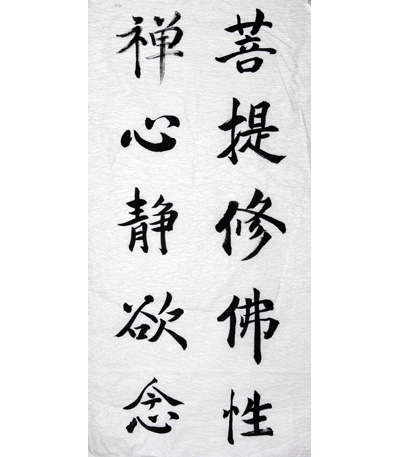 菩提修佛性
禅心静欲念